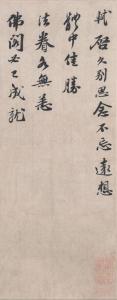 軾啓久別思念不忘遠想
體中佳勝
法眷各無恙
佛閣必已成就